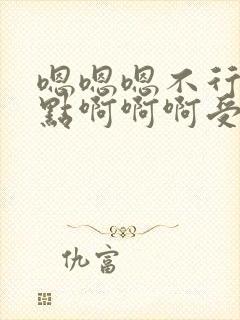 嗯嗯嗯不行
點啊啊啊受
仇富